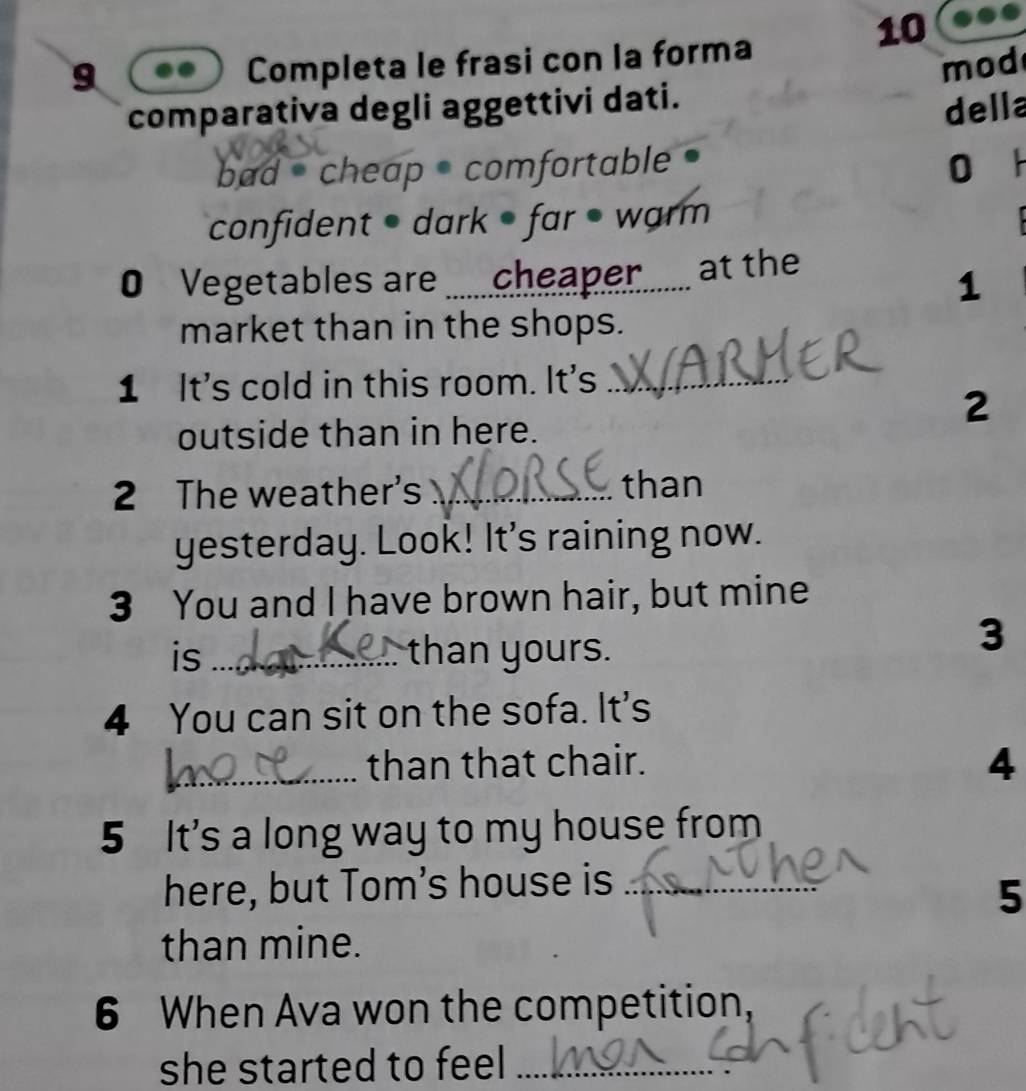 9 •• Completa le frasi con la forma
comparativa degli aggettivi dati.
bad • cheap • comfortable •
confident • dark • far • warm
0 Vegetables are cheaper at the
market than in the shops.
1 It's cold in this room. It's WARMER
outside than in here.
2 The weather's WORSE than
yesterday. Look! It's raining now.
3 You and I have brown hair, but mine
is darker than yours.
4 You can sit on the sofa. It's
more than that chair.
5 It's a long way to my house from
here, but Tom's house is farther
than mine.
6 When Ava won the competition,
she started to feel confident.
10 •••
mod
della
0
1
2
3
4
5